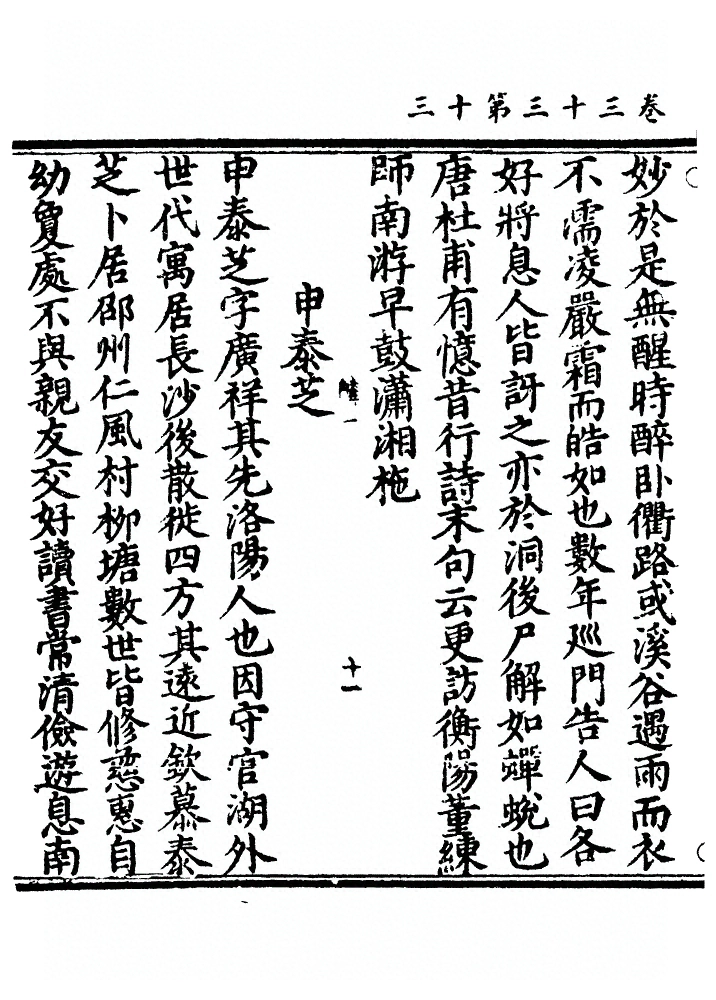 卷三十三第十三
妙於是無醒時醉卧衢路或溪谷遇雨而衣
不濡凌嚴霜而皓如也數年巡門告人曰各
好將息人皆訝之亦於洞後尸解如蟬蛻也
唐杜甫有憶昔行詩末句云更訪衡陽董練
師南游早鼓瀟湘柂
一
十一
申泰芝
申泰芝字廣祥其先洛陽人也因守官湖外
世代寓居長沙後散徙四方其遠近欽慕泰
芝卜居邵州仁風村柳塘數世皆修慈惠自
幼敻處不與親友交好讀書常清儉遊息南